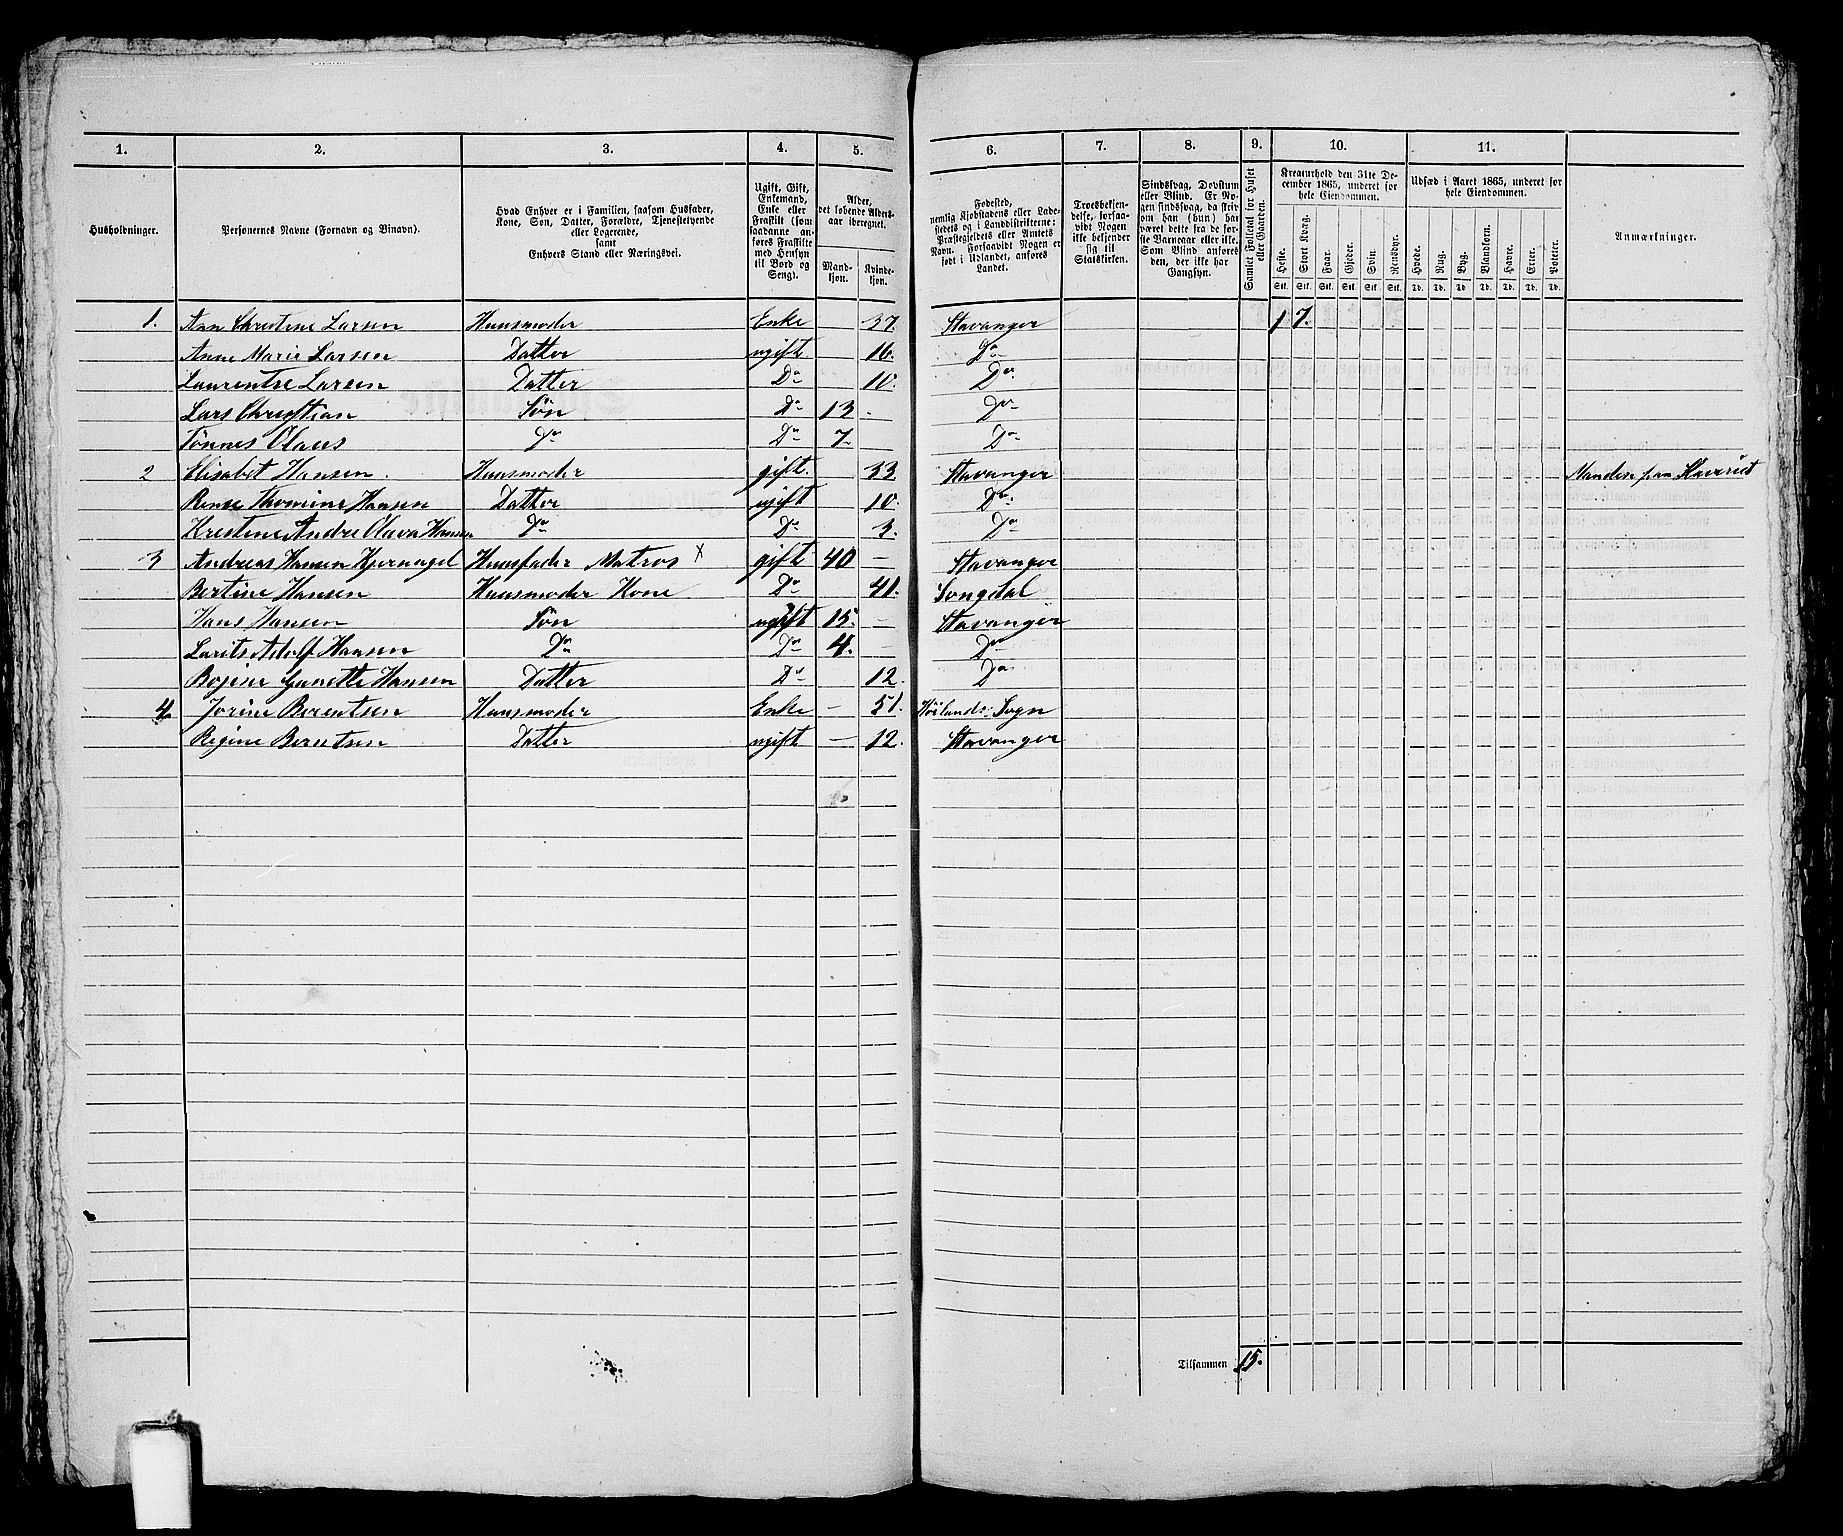 1. 2. 3. 4. 5. 6. 7. 8. 9. 10. 11.
Husholdninger.
Personernes Navne (Fornavn og Binavn).
Hvad Enhver er i Familien, saasom Husfader,
Kone, Søn, Datter, Forældre, Tjenestetyende
eller Logerende,
samt
Enhvers Stand eller Næringsvei.
Ugift, Gift,
Enkemand,
Enke eller
Fraskilt (som
saadanne an-
føres Fraskilte
med Hensyn
til Bord og
Seng).
Alder,
det løbende Alders-
aar iberegnet.
Mand-
kjøn.
Kvinde-
kjøn.
Fødested,
nemlig Kjøbstadens eller Lade-
stedets og i Landdistrikterne:
Præstegjeldets eller Amtets
Navn. Forsaavidt Nogen er
født i Udlandet, anføres
Landet.
Troesbekjen-
delse, forsaa-
vidt Nogen
ikke bekjender
sig til
Statskirken.
Sindssvag, Døvstum
eller Blind. Er No-
gen sindssvag, da skriv
om han (hun) har
været dette fra de før-
ste Barneaar eller ikke.
Som Blind anføres
den, der ikke har
Gangsyn.
Samlet Folketal for Huset
eller Gaarden.
Kreaturhold den 31te De-
cember 1865, underet for
hele Eiendommen.
Heste. Stort Kvæg. Faar. Gjeder. Svin. Rensdyr.
Stk. Stk. Stk. Stk. Stk. Stk.
Udsæd i Aaret 1865, underet for
hele Eiendommen.
Hvede. Rug. Byg. Blandkorn. Havre. Erter. Poteter.
Td. Td. Td. Td. Td. Td. Td.
Anmærkninger.
1. Ann Christine Larsen Huusmoder Enke 37. Stavanger 1 7.
Anne Marie Larsen Datter ugift 16. Do
Laurentse Larsen Datter Do 10. Do
Lars Christian Søn Do 13 - Do
Tønnes Olaus Do Do 7- Do
2 Elisabet Hansen. Huusmoder gift. 33. Stavanger Manden paa
Thomine Hansen Datter ugift 10. Do
Krestine Andre Olava Hansen Do Do 3. Do
3 Andreas Hansen Kjernagel Huusfader Matros X gift 40 - Stavanger
Bertine Hansen Huusmoder Kone Do 41. Songdal
Hans Hansen Søn ugift 15. - Stavanger
Larits Adolf Hansen Do Do 4. - Do
Garette Hansen Datter Do 12. Do
4 Jorine Berentsen Huusmoder Enke - 51. Høilands Sogn
Regine Berntsen Datter ugift - 12. Stavanger
Tilsammen 15.